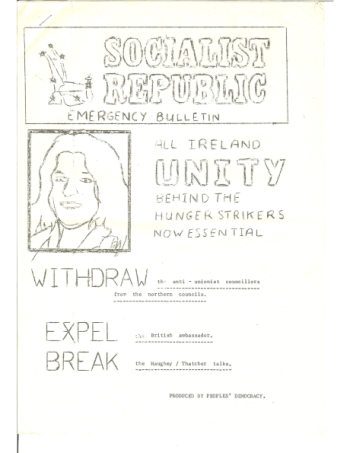 SOCIALIST
REPUBLIC
EMERGENCY BULLETIN
ALL IRELAND
UNITY
BEHIND THE
HUNGER STRIKERS
NOW ESSENTIAL
WITHDRAW the anti - unionist councillors
from the northern councils.
EXPEL the British ambassador.
BREAK the Haughey / Thatcher talks.
PRODUCED BY PEOPLES' DEMOCRACY.